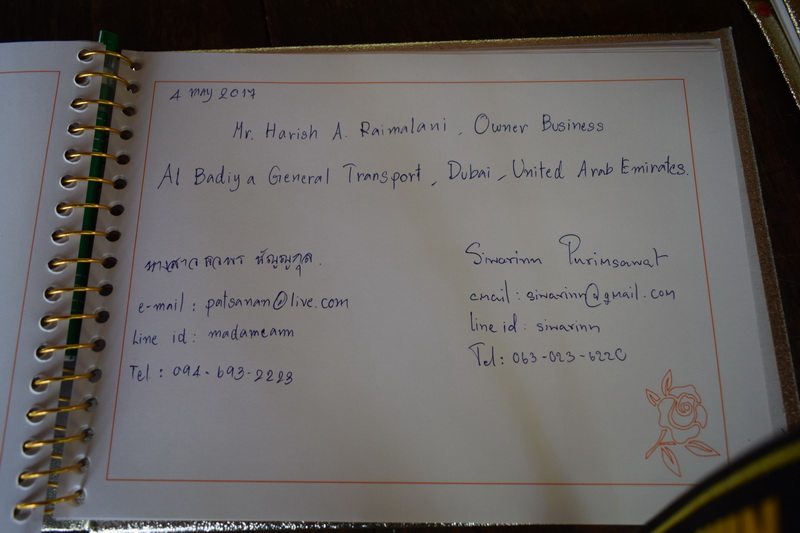 4 May 2017
Mr. Harish A. Raimalani, Owner Business
Al Badiya General Transport, Dubai, United Arab Emirates.
นางสาว
e-mail : patsanan@live.com
Line id : madameann
Tel : 094-693-2223
Siwarinn Purimsawat
email : siwarinn@gmail.com
line id : siwarinn
Tel : 063-023-6220